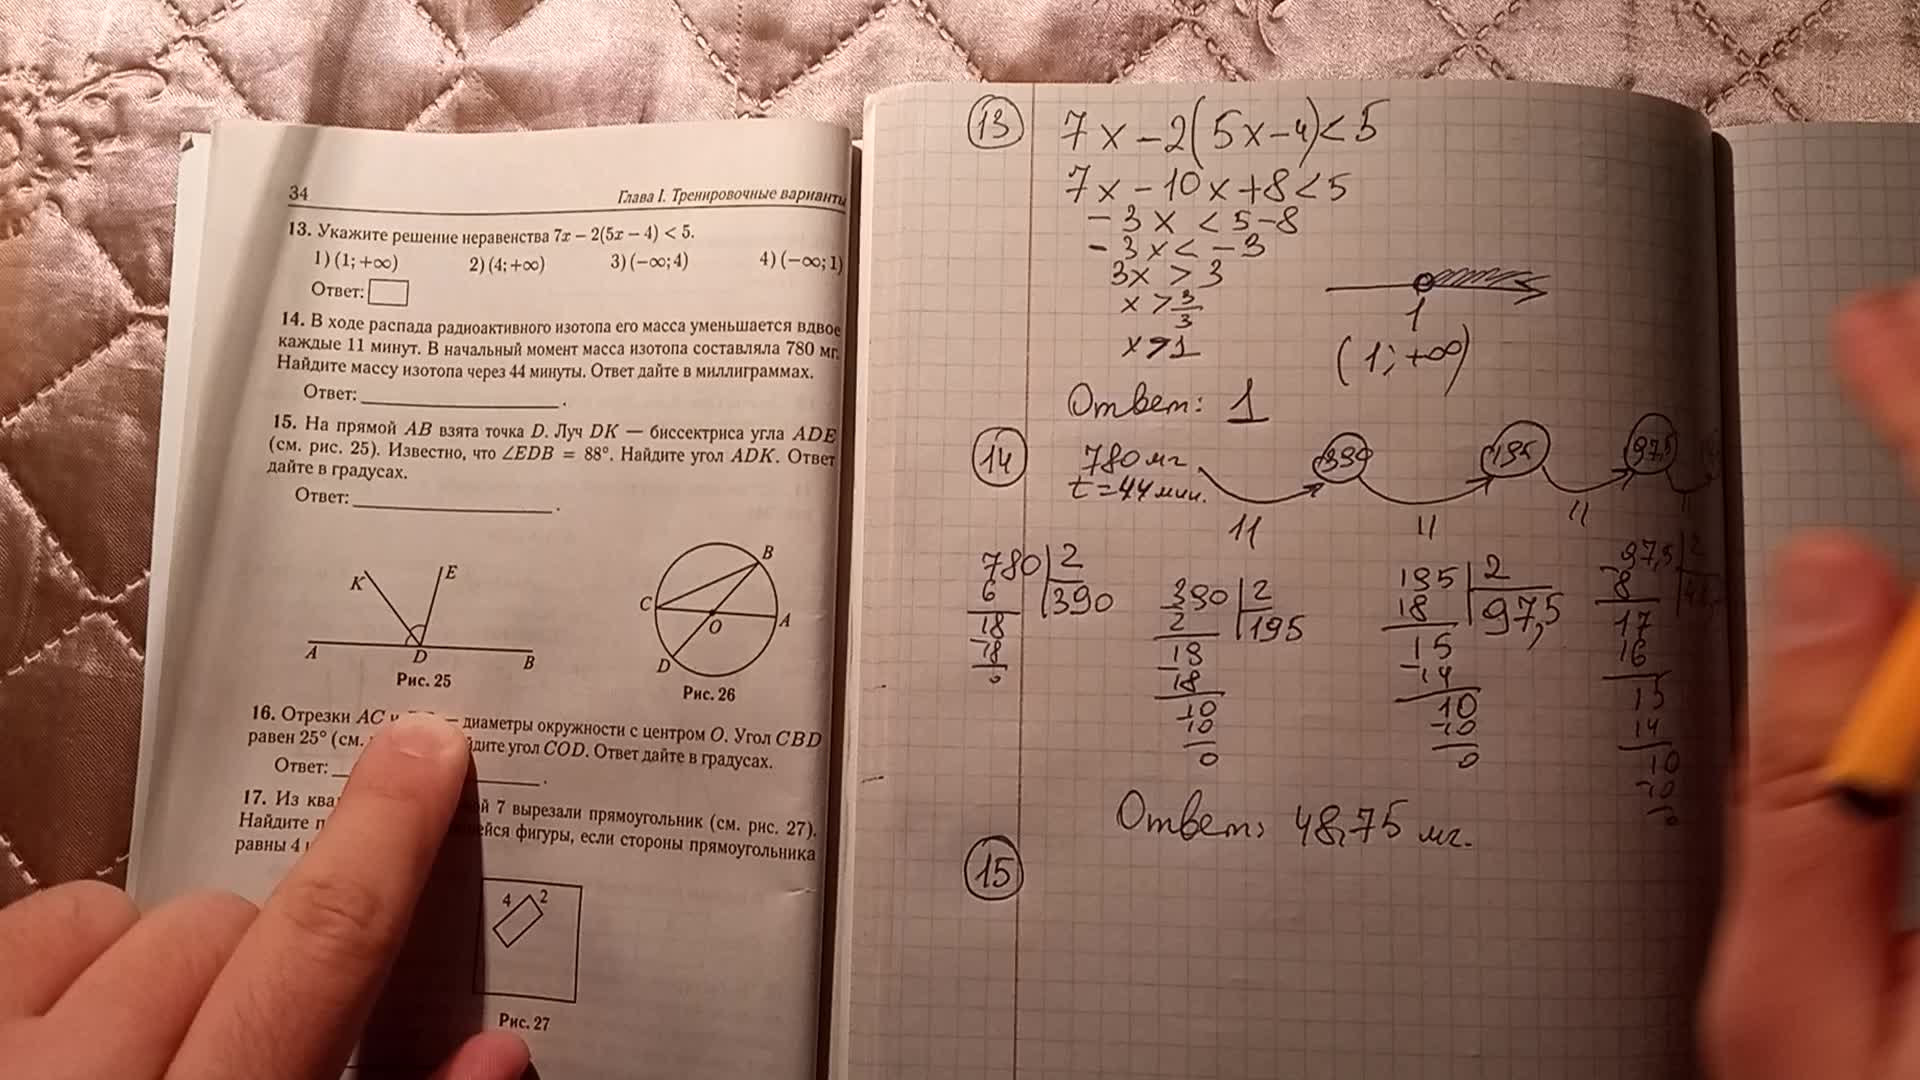 34
Глава I. Тренировочные варианты
13. Укажите решение неравенства 7x − 2(5x − 4) < 5.
1) (1; +∞) 2) (4; +∞) 3) (−∞; 4) 4) (−∞; 1)
Ответ:
14. В ходе распада радиоактивного изотопа его масса уменьшается вдвое
каждые 11 минут. В начальный момент масса изотопа составляла 780 мг.
Найдите массу изотопа через 44 минуты. Ответ дайте в миллиграммах.
Ответ: .
15. На прямой AB взята точка D. Луч DK — биссектриса угла ADE
(см. рис. 25). Известно, что ∠EDB = 88°. Найдите угол ADK. Ответ
дайте в градусах.
Ответ: .
K E
A D B
Рис. 25
B
C
O
A
D
Рис. 26
16. Отрезки AC — диаметры окружности с центром O. Угол CBD
равен 25° (см. угол COD. Ответ дайте в градусах.
Ответ: .
17. Из 7 вырезали прямоугольник (см. рис. 27).
Найдите фигуры, если стороны прямоугольника
равны 4
4 2
Рис. 27
13 7x − 2(5x − 4) < 5
7x − 10x + 8 < 5
− 3x < 5 − 8
− 3x < − 3
3x > 3
x > 3/3
x > 1
1
(1; +∞)
Ответ: 1
14 780 мг 390 195 97,5
t = 44 мин.
11 11 11 11
780 2
6 390
18
−18
0
390 2
2 195
19
−18
10
10
0
195 2
18 97,5
15
−14
10
−10
0
97,5 2
8
17
16
15
14
10
−10
0
Ответ: 48,75 мг.
15